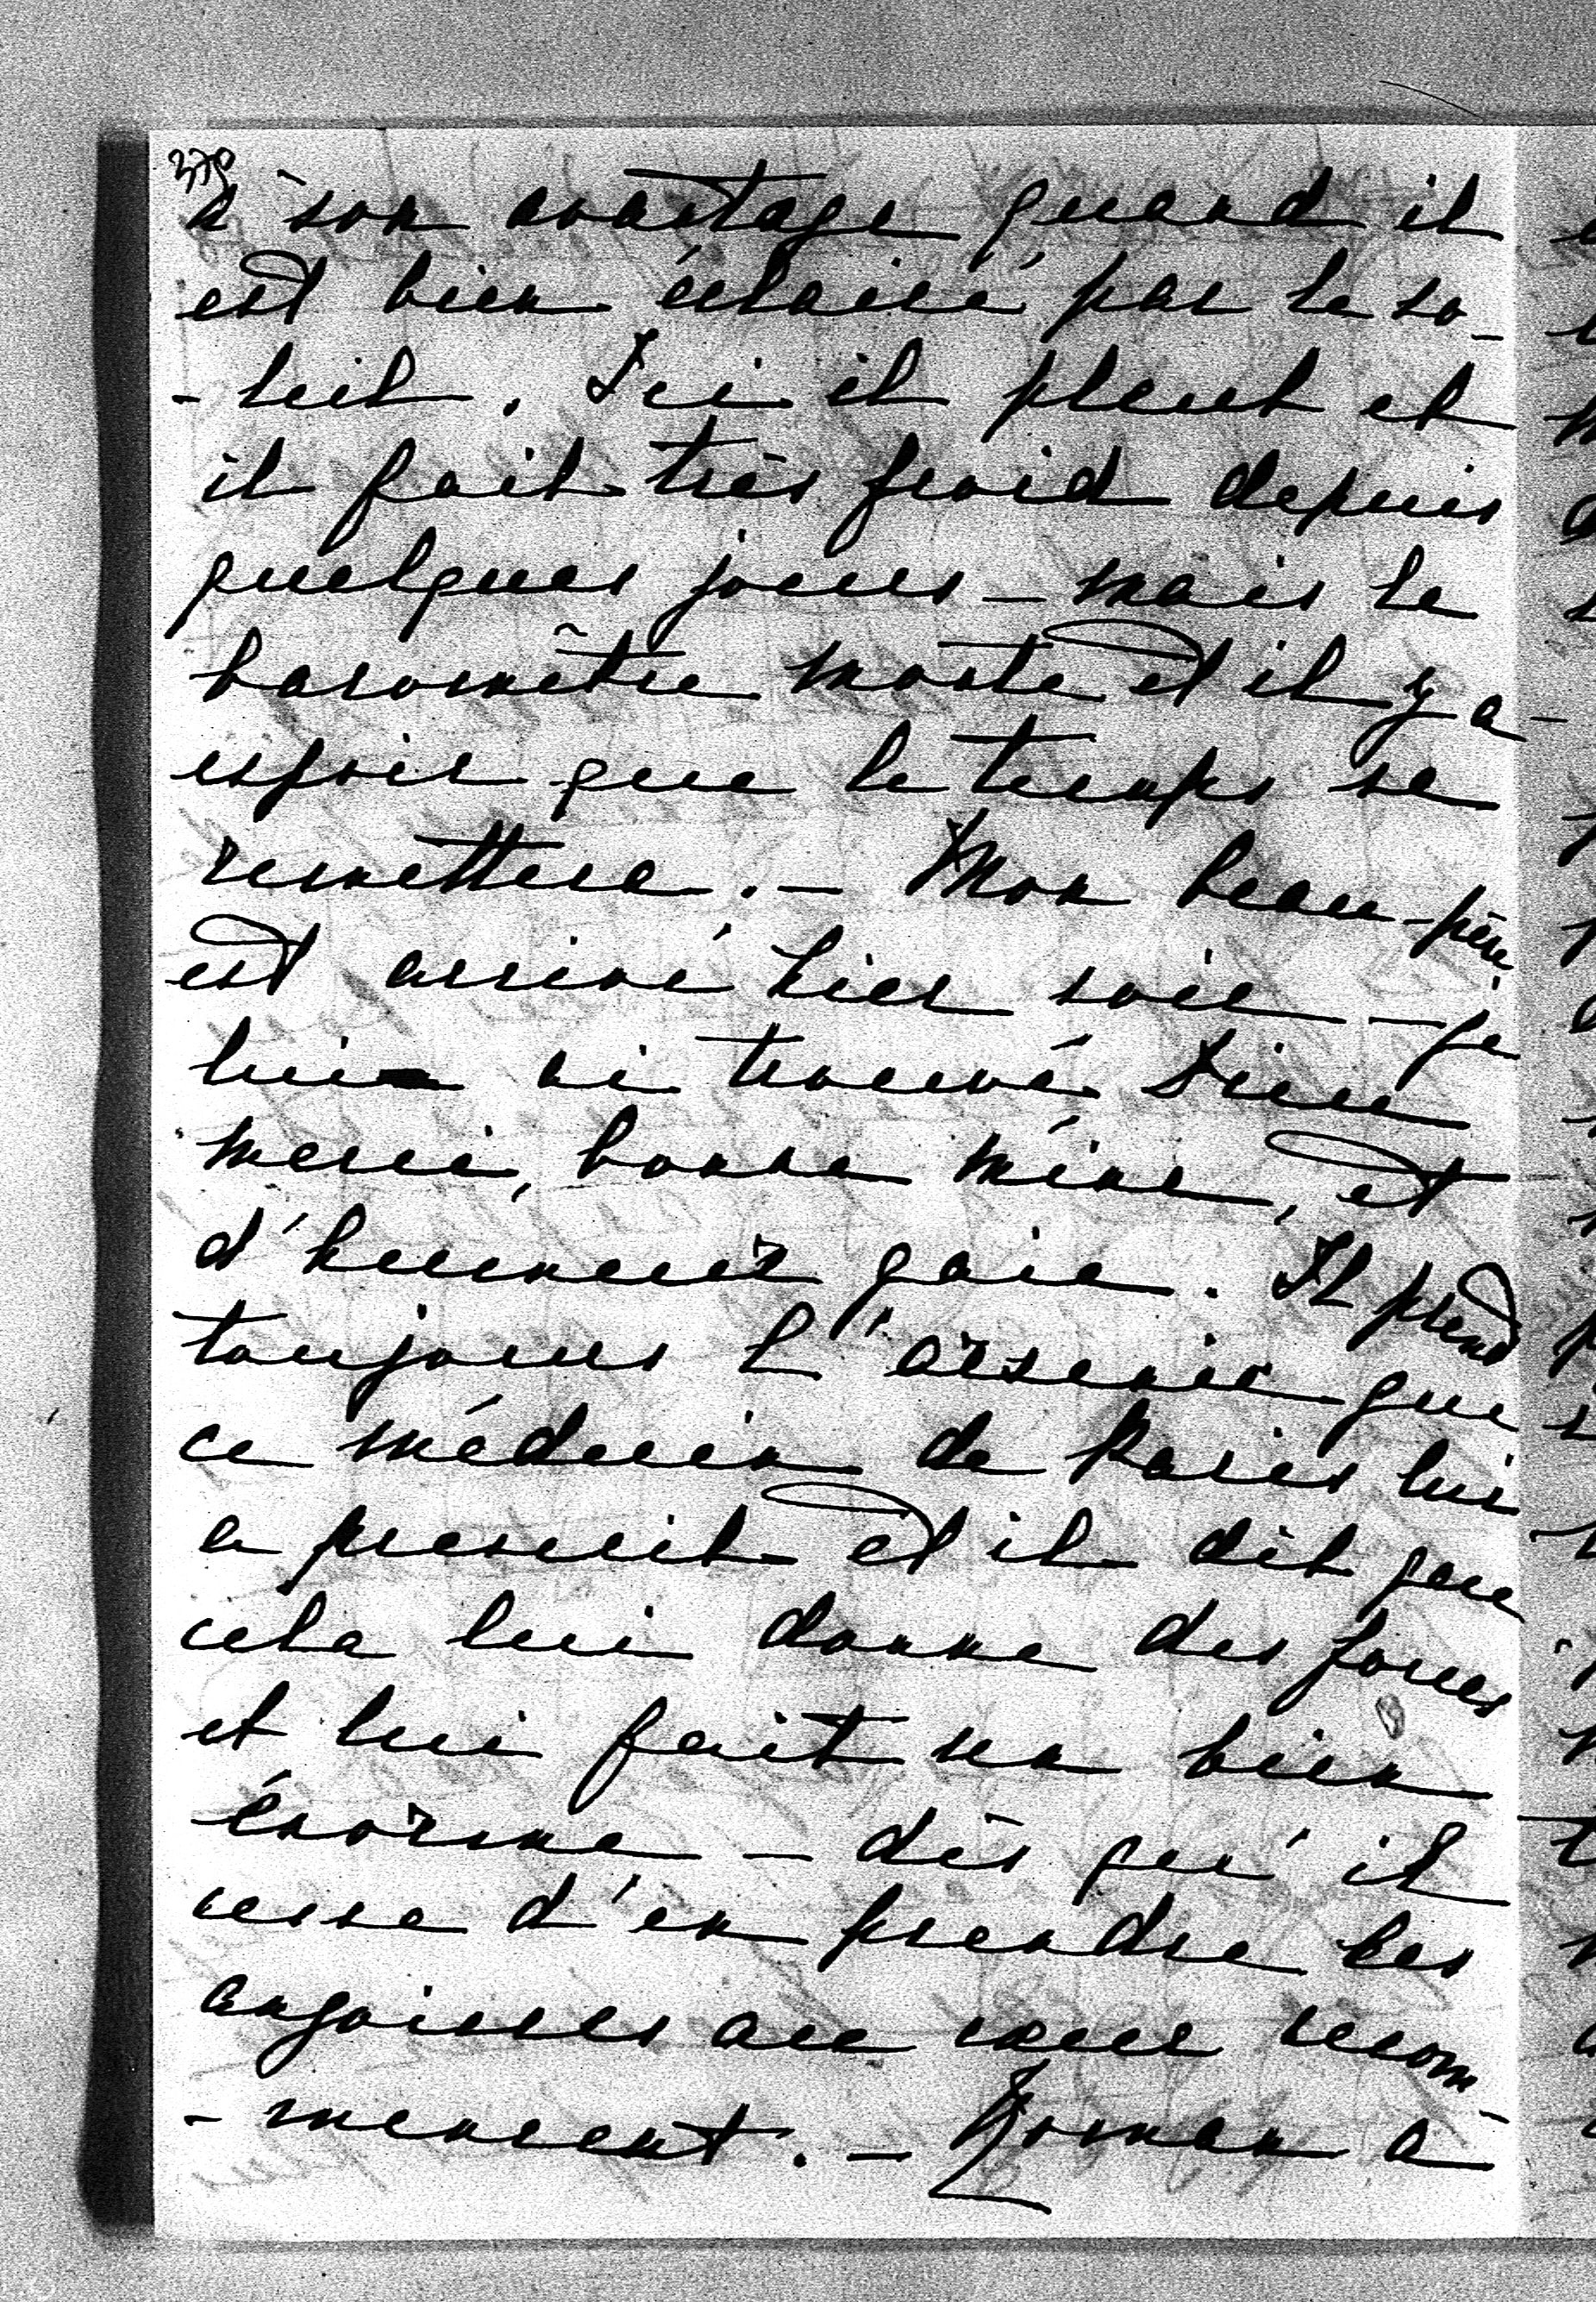 378
à son avantage quand il
est bien éclairé par le so-
-leil. Ici il pleut et
il fait très froid depuis
quelques jours — mais le
baromètre monte et il y a
espoir que le temps se
remettera. — Mon beau-père
est arrivé hier soir — je
lui ai trouvé Dieu
merci, bonne mine, et
d'humeur gaie. Il prend
toujours l'arsenic que
ce médecin de Paris lui
a prescrit et il dit que
cela lui donne des forces
et lui fait un bien
énorme — dès qu'il
cesse d'en prendre les
angoisses au cœur recom-
-mencent. — Roman a